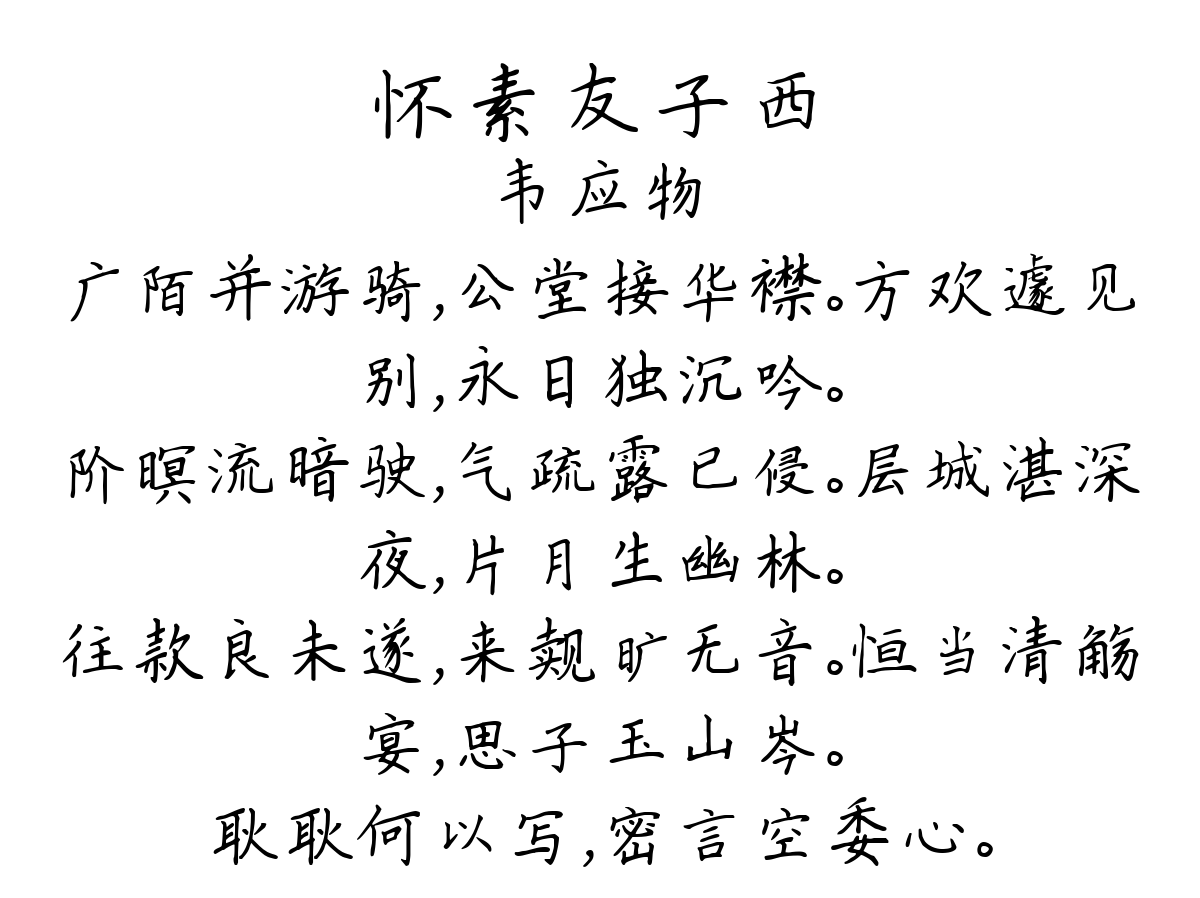 怀素友子西
韦应物
广陌并游骑,公堂接华襟。方欢遽见
别,永日独沉吟。
阶暝流暗驶,气疏露已侵。层城湛深
夜,片月生幽林。
往款良未遂,来觌旷无音。恒当清觞
宴,思子玉山岑。
耿耿何以写,密言空委心。